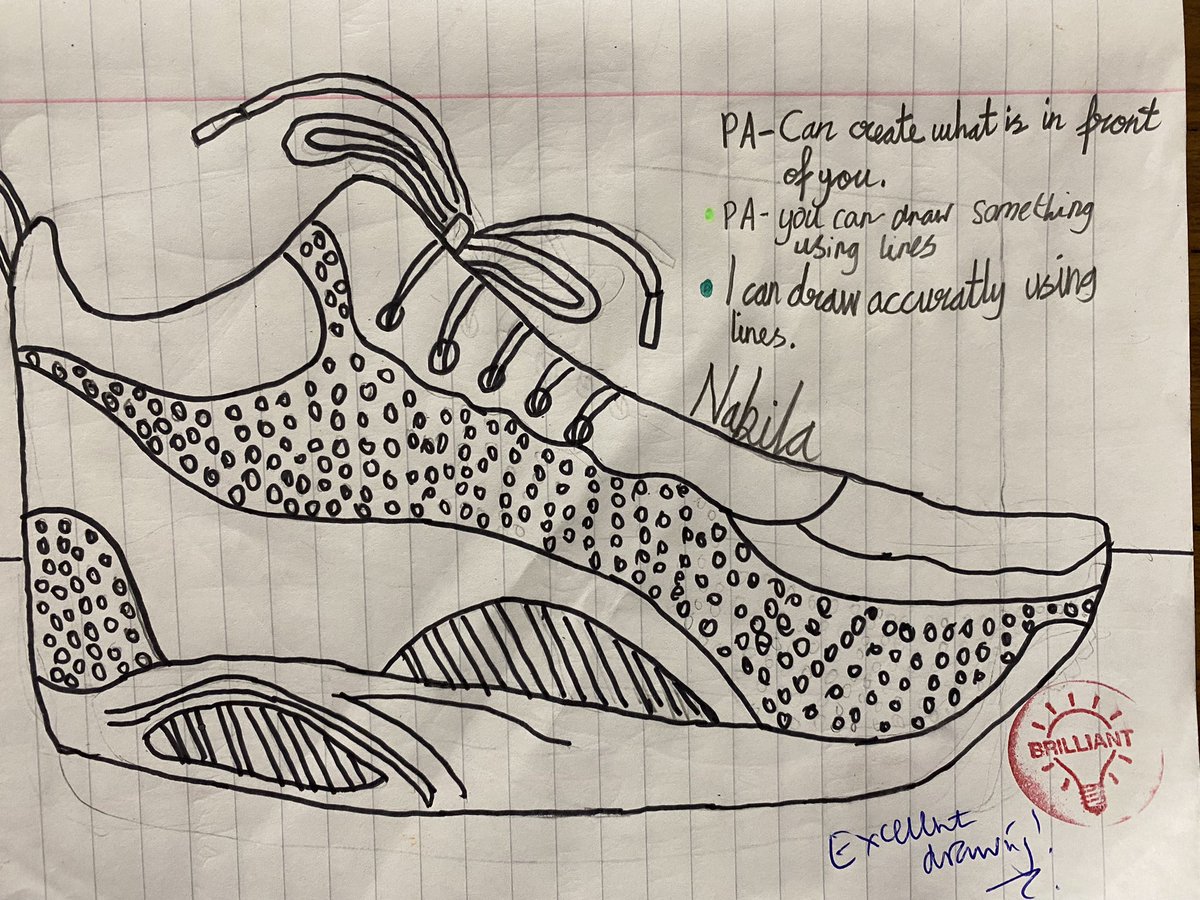 PA-Can create what is in front
of you.
PA- you can draw something
using lines
I can draw accuratly using
lines.
Nakila
BRILLIANT
Excellnt
drawing!